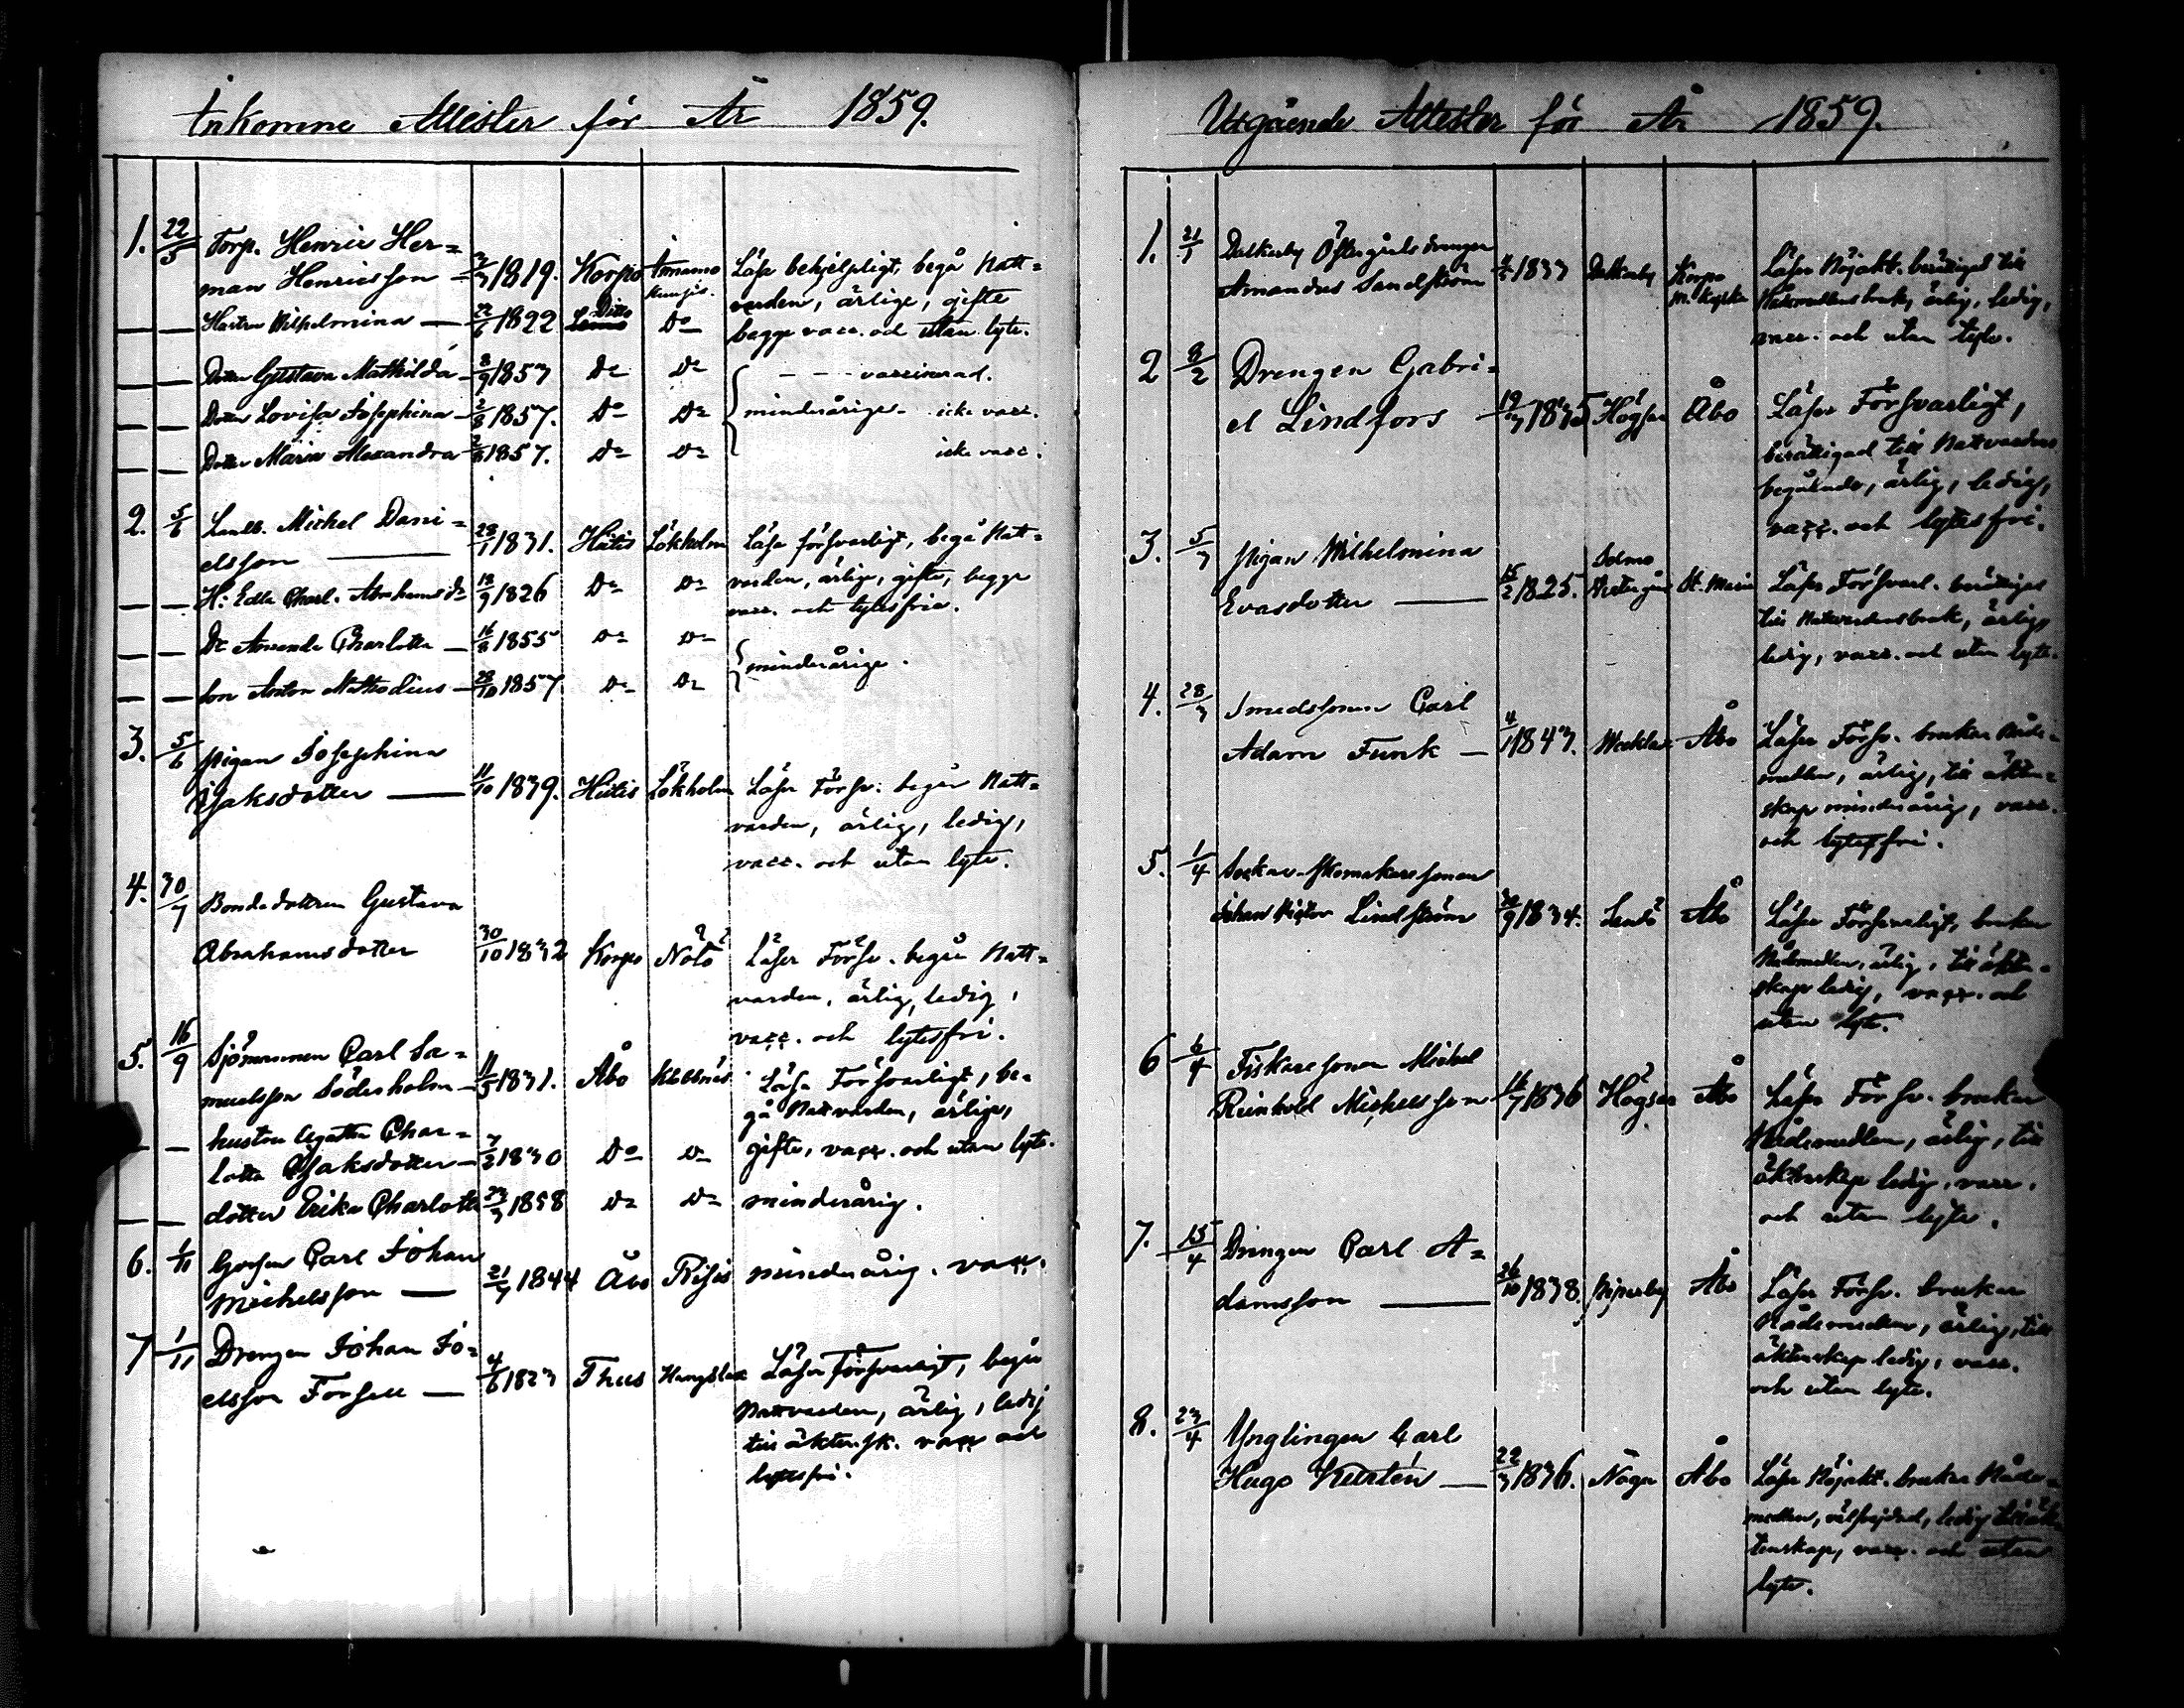 Inkomne Attester för År 1859.
1. 22/5 Torp. Henric Her=
man Henricsson 1819. Korpo
Läse behjelpligt, begå Natt=
varden, ärlige, gifte
Hustru Wilhelmina — 22/6 1822 Ditto Do
begge vacc. och utan lyte.
— — Dotter Gustava Mathilda — 1853 Do Do — — vaccinerad.
— — Dotter Lovisa Josephina — 2/8 1857. Do Do minderårige icke vacc.
— — Dotter Maria Alexandra 2/8 1857. Do Do icke vacc.
2. 5/6 Landb. Michel Dani=
elsson — 28/1 1831. Hitis Lökholm Läse försvarligt, begå Natt=
varden, ärlige, gifte, begge
— — H: Edla Charl. Abrahamsdr 1826 Do Do
vacc. och lytesfrie.
— — Dr Amanda Charlotta — 16/8 1855 Do Do
minderårige.
— — Son Anton Mathodius — 28/10 1857 Do Do
3. 5/6 Pigan Josephina
Isaksdotter — 11/10 1839. Hitis Lökholm Läser Försv. begår Natt=
varden, ärlig, ledig,
vacc. och utan lyte.
4. 30/7 Bondedottren Gustava
Abrahamsdotter 30/10 1832 Korpo Nötö Läser Försv. begår Natt=
varden, ärlig, ledig,
vacc. och lytesfri.
5. 16/9 Sjömannen Carl Sa=
muelsson Söderholm — 11/5 1831. Åbo Läse Försvarligt, be=
gå Nattvarden, ärlige,
— — hustru Agatha Char=
lotta Isaksdotter — 7/2 1830 Do Do gifte, vacc. och utan lyte.
— — dotter Erika Charlotta 23/3 1858 Do Do minderårig.
6. Gossen Carl Johan
Michelsson — 1844 Åbo minderårig. vacc.
7 1/11 Drengen Johan Jo=
elsson Forsell — 4/6 1823 Läser Försvarligt, begår
Nattvarden, ärlig, ledig
till äktensk. vacc och
lytesfri.
Utgående Attester för År 1859.
1. 21/1 Dalkarby Östergårds drengen
Amandus Sandström 1833 Dalkarby Korpo
Läser Nöjakt. berättigad till
Nådemedlens bruk, ärlig, ledig,
vacc. och utan lyte.
2 8/2 Drengen Gabri=
el Lindfors — 19/3 1835 Högsar Åbo Läser Försvarligt,
berättigad till Nattvardens
begående, ärlig, ledig,
vacc. och lytesfri.
3. 5/3 Pigan Wilhelmina
Evasdotter — 15/2 1825. St. Marie Läser Försvarl. berättigad
till Nattvardens bruk, ärlig,
ledig, vacc. och utan lyte.
4. 28/3 Smedssonen Carl
Adam Funk — 1843. Åbo Läser Försv. brukar Nåde=
medlen, ärlig, till äkten=
skap minderårig, vacc.
och lytesfri.
5. 1/4 Sockne-Skomakaressonen
Johan Victor Lindström 1834. Åbo Läser Försvarligt, brukar
Nådemedlen, ärlig, till äkten=
skap ledig, vacc. och
utan lyte.
6 6/4 Fiskaresonen Michel
Reinhold Michelsson 16/7 1836 Högsar Åbo Läser Försv. brukar
Nådemedlen, ärlig, till
äktenskap ledig, vacc.
och utan lyte.
7. 15/4 Drengen Carl A=
damsson — 26/10 1838. Åbo Läser Försv. brukar
Nådemedlen, ärlig, till
äktenskap ledig, vacc.
och utan lyte.
8. 23/4 Ynglingen Carl
Hugo — 22/3 1836. Åbo Läser Nöjakt. brukar Nåde=
medlen, välfrejdad, ledig till äk=
tenskap, vacc. och utan
lyte.